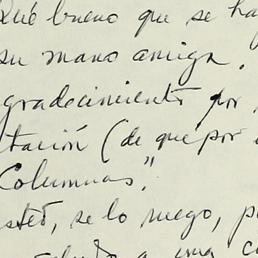 Qué bueno que se ha
su mano amiga.
gradecimiento por
tación (de que por
Columnas".
sted, se lo ruego, p
saludo a una c